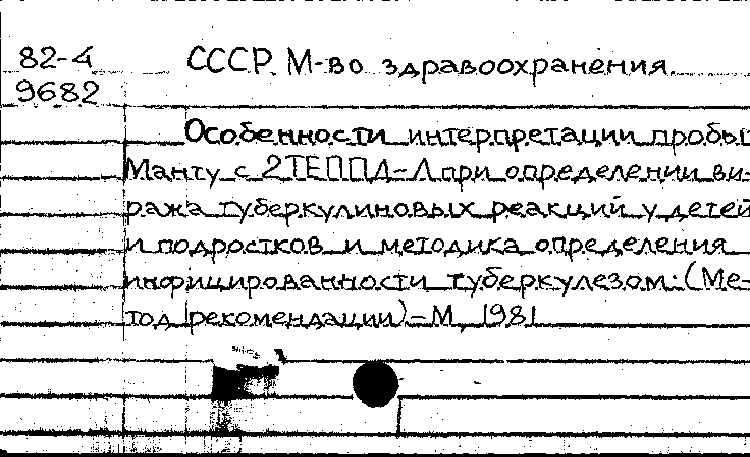 82-4 СССР. М-во здравоохранения.
9682
Особенности интерпретации пробы
Манту с 2ТЕППД-Л при определении ви-
ража туберкулиновых реакций у детей
и подростков и методика определения
инфицированности туберкулезом: (Ме-
тод рекомендации)-М, 1981